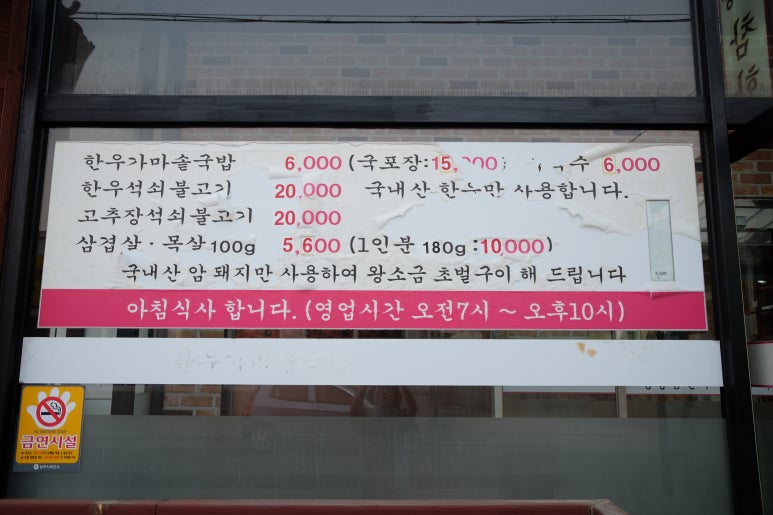 한우가마솥국밥 6,000 (국포장:15, 수 6,000
한우석쇠불고기 20,000 국내산 한우만 사용합니다.
고추장석쇠불고기 20,000
삼겹살 · 목살 100g 5,600 (1인분 180g :10,000)
국내산 암 돼지만 사용하여 왕소금 초벌구이 해 드립니다
아침식사 합니다. (영업시간 오전7시 ~ 오후10시)
한우가마솥국밥
NO SMOKING ZONE
금연시설